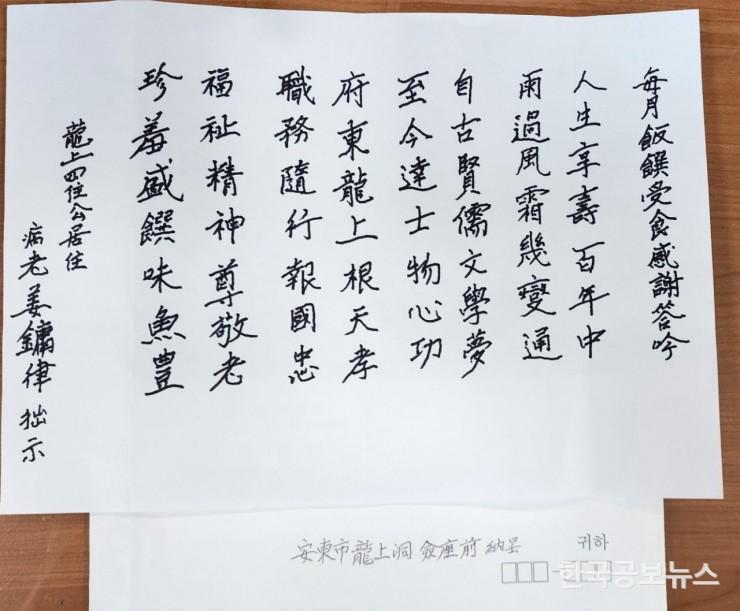 每月飯饌受食感謝答吟
人生享壽百年中
雨過風霜幾變通
自古賢儒文學夢
至今達士物心功
府東龍上根天孝
職務隨行報國忠
福祉精神尊敬老
珍羞盛饌味魚豊
龍上四住公居住
病老姜鏞律拙示
安東市龍上洞 座前 納
귀하
한국공보뉴스